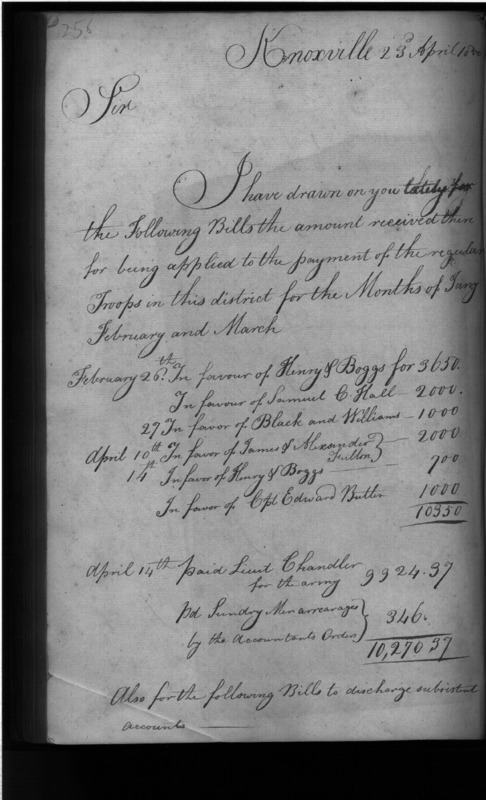 256
Knoxville 23d April
Sir
I have drawn on you lately for
the Following Bills the amount received there
for being applied to the payment of the regular
Troops in this district for the Months of Jany
February and March
February 26th. In favour of Henry & Boggs for 3650.
In favour of Samuel C. Hall — 2000.
27 In favor of Black and Williams — 1000
April 10th In favor of James & Alexander Fulton} — 2000
14th In favor of Henry & Boggs — 700
In favor of Cpt Edward Butler 1000
10350
April 14th paid Lieut Chandler
for the army 9924.37
pd Sundry Men arrearages
by the Accountants Order} 346.
10,270 37
Also for the following Bills to discharge subsistent
accounts —